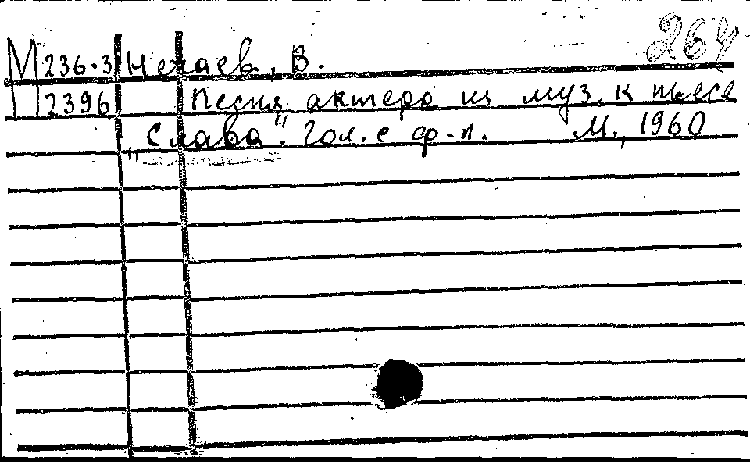 264
М 236.3 Нечаев, В.
2396 Песня актера из муз. к пьесе
„Слава". Гол. с ф-п. М., 1960